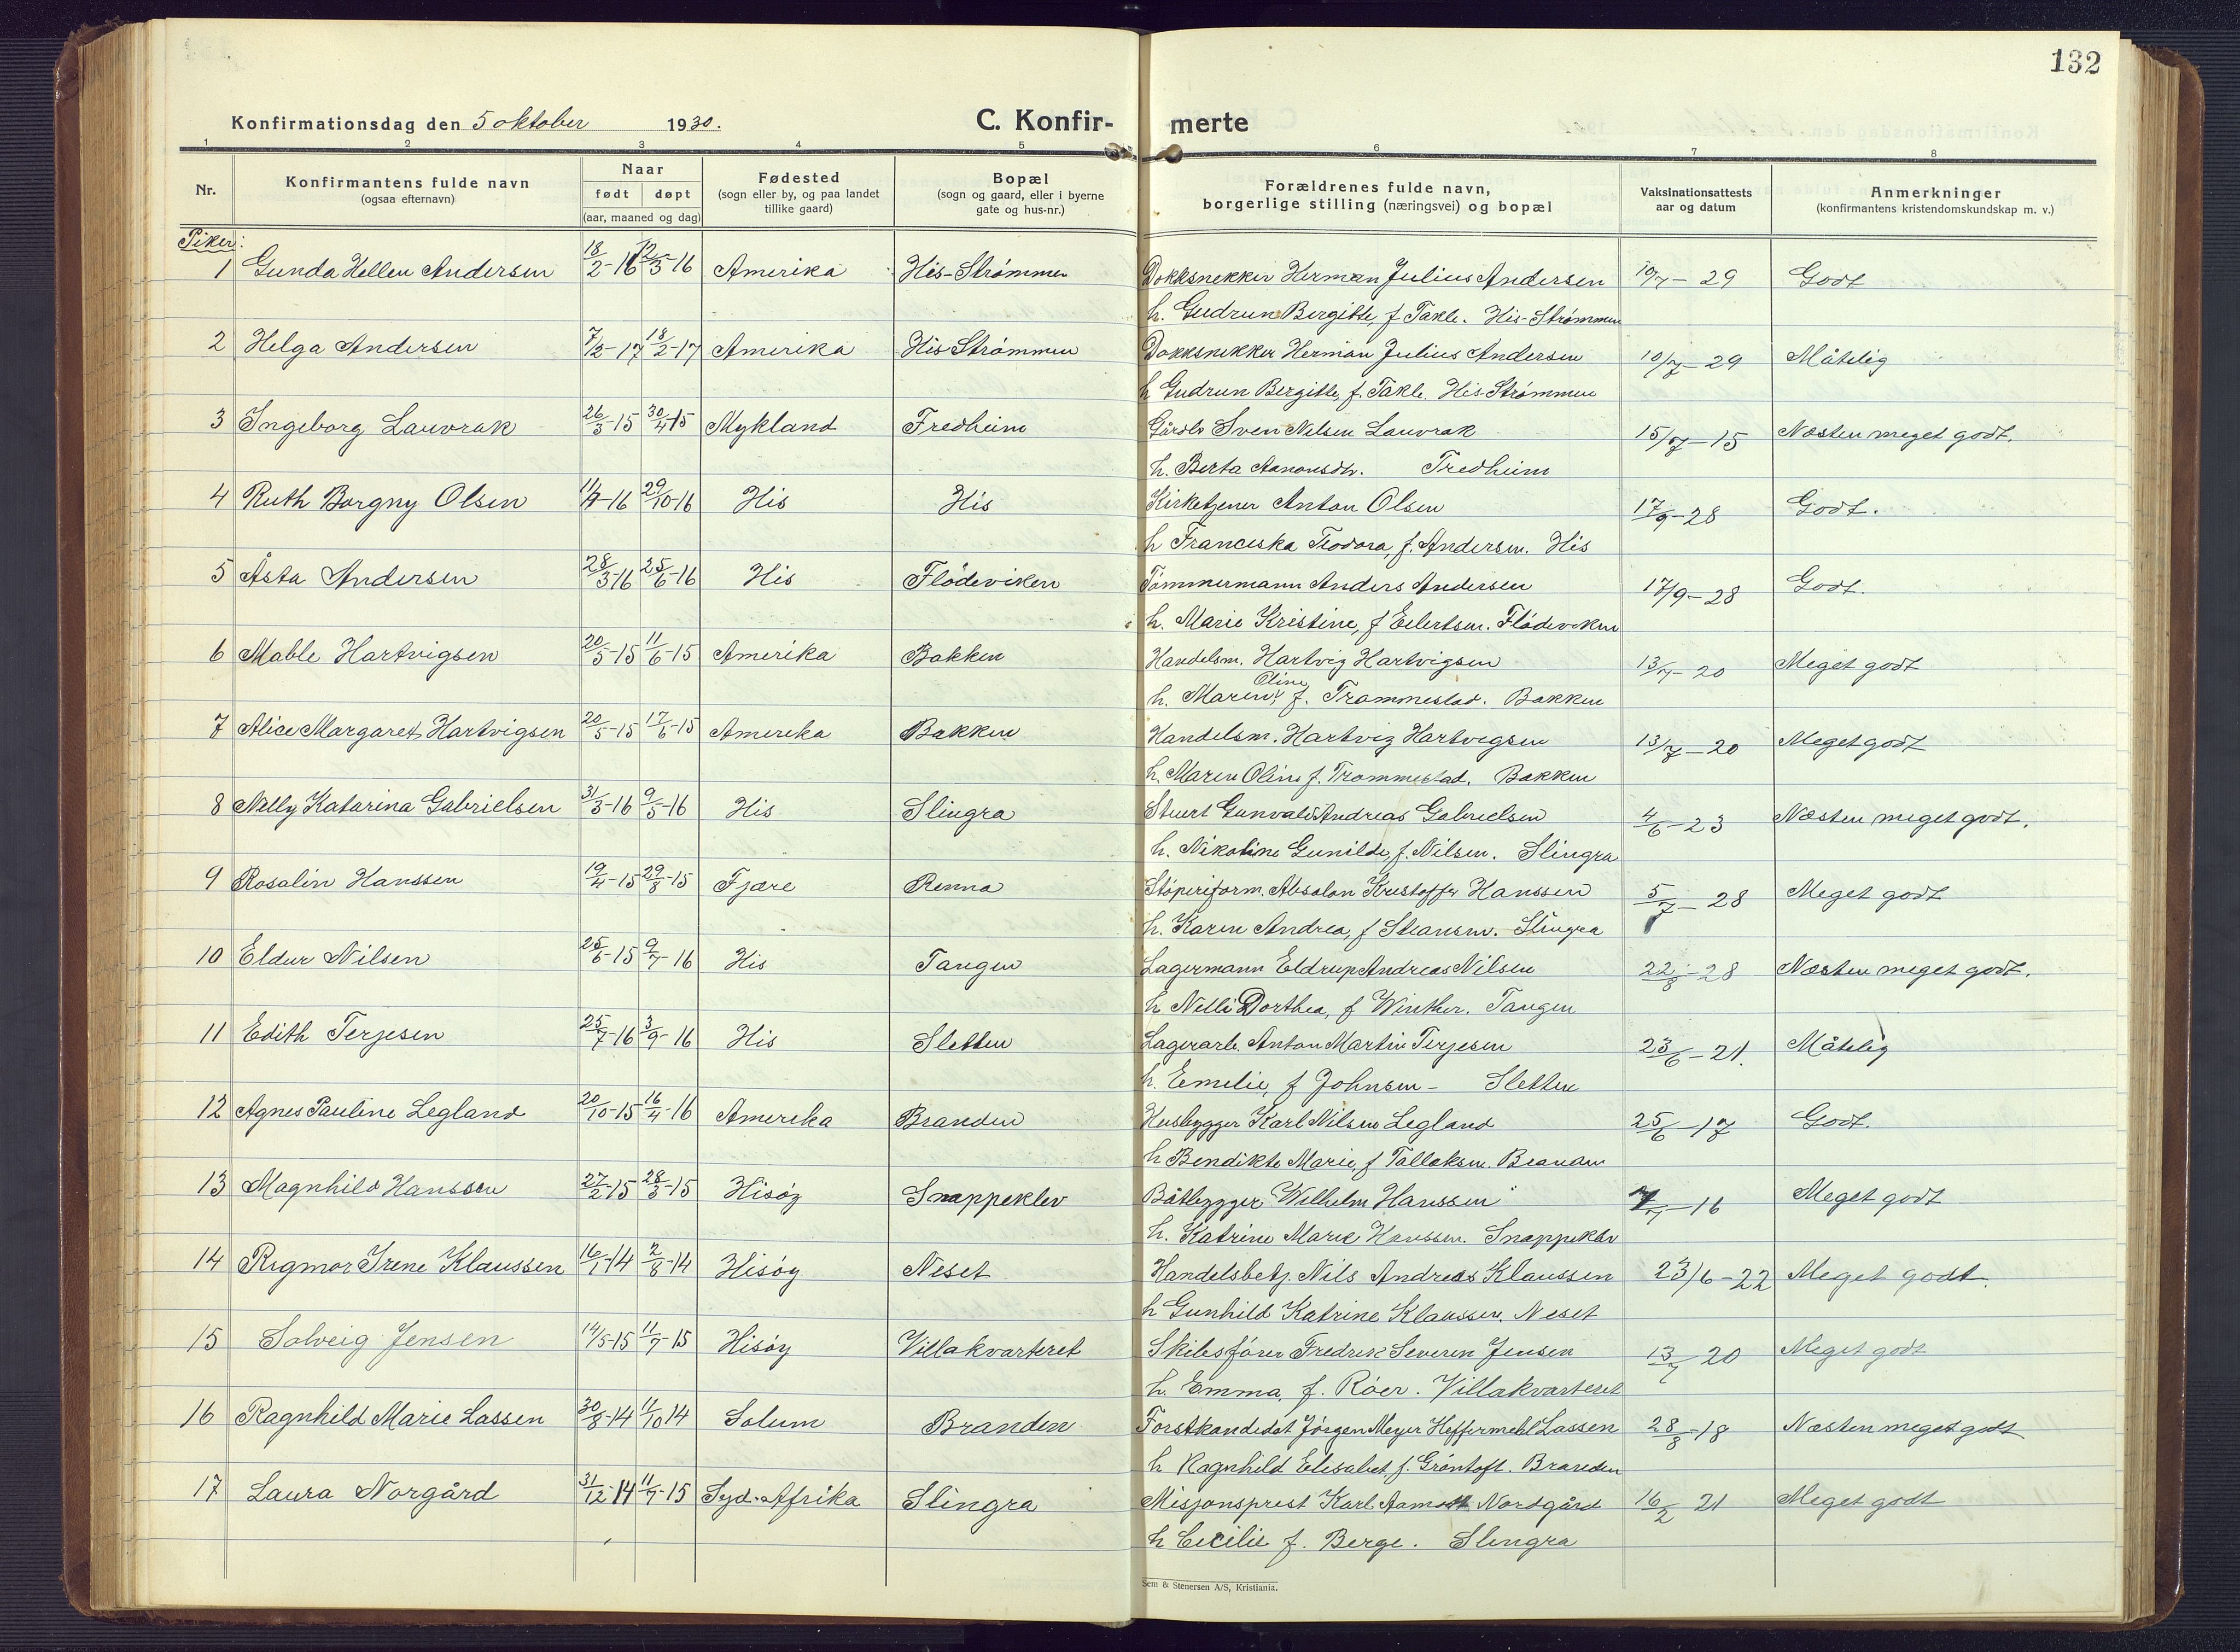 132
Konfirmationsdag den 5 oktober 1930.
C. Konfir- merte
1 2 3 4 5 6 7 8
Nr. Konfirmantens fulde navn (ogsaa efternavn) Naar født døpt (aar, maaned og dag) Fødested (sogn eller by, og paa landet tillike gaard) Bopæl (sogn og gaard, eller i byerne gate og hus-nr.) Forældrenes fulde navn, borgerlige stilling (næringsvei) og bopæl Vaksinationsattests aar og datum Anmerkninger (konfirmantens kristendomskundskap m. v.)
Piker:
1 Gunda Hellen Andersen 18/2-16 12/3-16 Amerika His-Strømmen Dokksnekker Herman Julius Andersen 10/7-29 Godt
h. Gudrun Bergitte, f Takle. His-Strømmen
2 Helga Andersen 7/2-17 18/2-17 Amerika His-Strømmen Dokksnekker Herman Julius Andersen 10/7-29 Måtelig
h Gudrun Bergitte, f. Takle. His-Strømmen
3 Ingeborg Lauvrak 26/3-15 30/4-15 Mykland Fredheim Gårdbr Sven Nilsen Lauvrak 15/7-15 Næsten meget godt.
h. Berta Aanonsdtr. Fredheim
4 Ruth Borgny Olsen 11/7-16 29/10-16 His His Kirketjener Anton Olsen 17/9-28 Godt.
h Franciska Teodora, f. Andersen. His
5 Åsta Andersen 28/3-16 25/6-16 His Flödeviken Tömmermann Anders Andersen 17/9-28 Godt.
h. Marie Kristine, f Eilertsen. Flödeviken
6 Mable Hartvigsen 20/5-15 11/6-15 Amerika Bakken Handelsm. Hartvig Hartvigsen 13/7-20 Meget godt
h. Maren Oline, f. Trommestad. Bakken
7 Alice Margaret Hartvigsen 20/5-15 17/6-15 Amerika Bakken Handelsm. Hartvig Hartvigsen 13/7-20 Meget godt
h. Maren Oline f. Trommestad. Bakken
8 Nelly Katarina Gabrielsen 31/3-16 9/5-16 His Slingra Stuert Gunvald Andreas Gabrielsen 4/6-23 Næsten meget godt.
h. Nikoline Gunilde, f. Nilsen. Slingra
9 Rosalin Hanssen 19/4-15 29/8-15 Fjære Renna Stöperiform. Absalon Kristoffer Hanssen 5/7-28 Meget godt
h. Karen Andrea, f Steansen. Slingra
10 Eldur Nilsen 25/6-15 9/7-16 His Tangen Lagermann Eldrup Andreas Nilsen 22/8-28 Næsten meget godt.
h Nelli Dorthea, f Winther. Tangen
11 Edith Terjesen 25/7-16 3/9-16 His Sletten Lagerarb. Anton Martin Terjesen 23/6-21. Måtelig
h. Emilie, f Johnsen - Sletten
12 Agnes Pauline Legland 20/10-15 16/4-16 Amerika Branden Husbygger Karl Nilsen Legland 25/6-17 Godt.
h Bendikte Marie, f Tallaksen. Branden
13 Magnhild Hanssen 27/2-15 28/3-15 Hisöy Snappeklev Båtbygger Wilhelm Hanssen 7/7-16 Meget godt
h. Katrine Marie Hanssen. Snappeklev
14 Rigmor Irene Klaussen 16/1-14 2/8-14 Hisöy Neset Handelsbetj. Nils Andreas Klaussen 23/6-22 Meget godt.
h Gunhild Katrine Klaussen. Neset
15 Solveig Jensen 14/5-15 11/7-15 Hisöy Villakvarteret Skibsförer Fredrik Severin Jensen 13/7 20 Meget godt
h. Emma, f. Röer. Villakvarteret
16 Ragnhild Marie Lassen 30/8-14 11/10 14 Solum Branden Forstkandidat Jörgen Meyer Heffermehl Lassen 28/8-18 Næsten meget godt
h Ragnhild Elisabet, f. Gröntoft. Branden
17 Laura Norgård 31/12-14 11/7-15 Syd-Afrika Slingra Misjonsprest Karl Aamodt Nordgård 16/2 21 Meget godt
h Cecilie f. Berge. Slingra
Sem & Stenersen A/S, Kristiania.